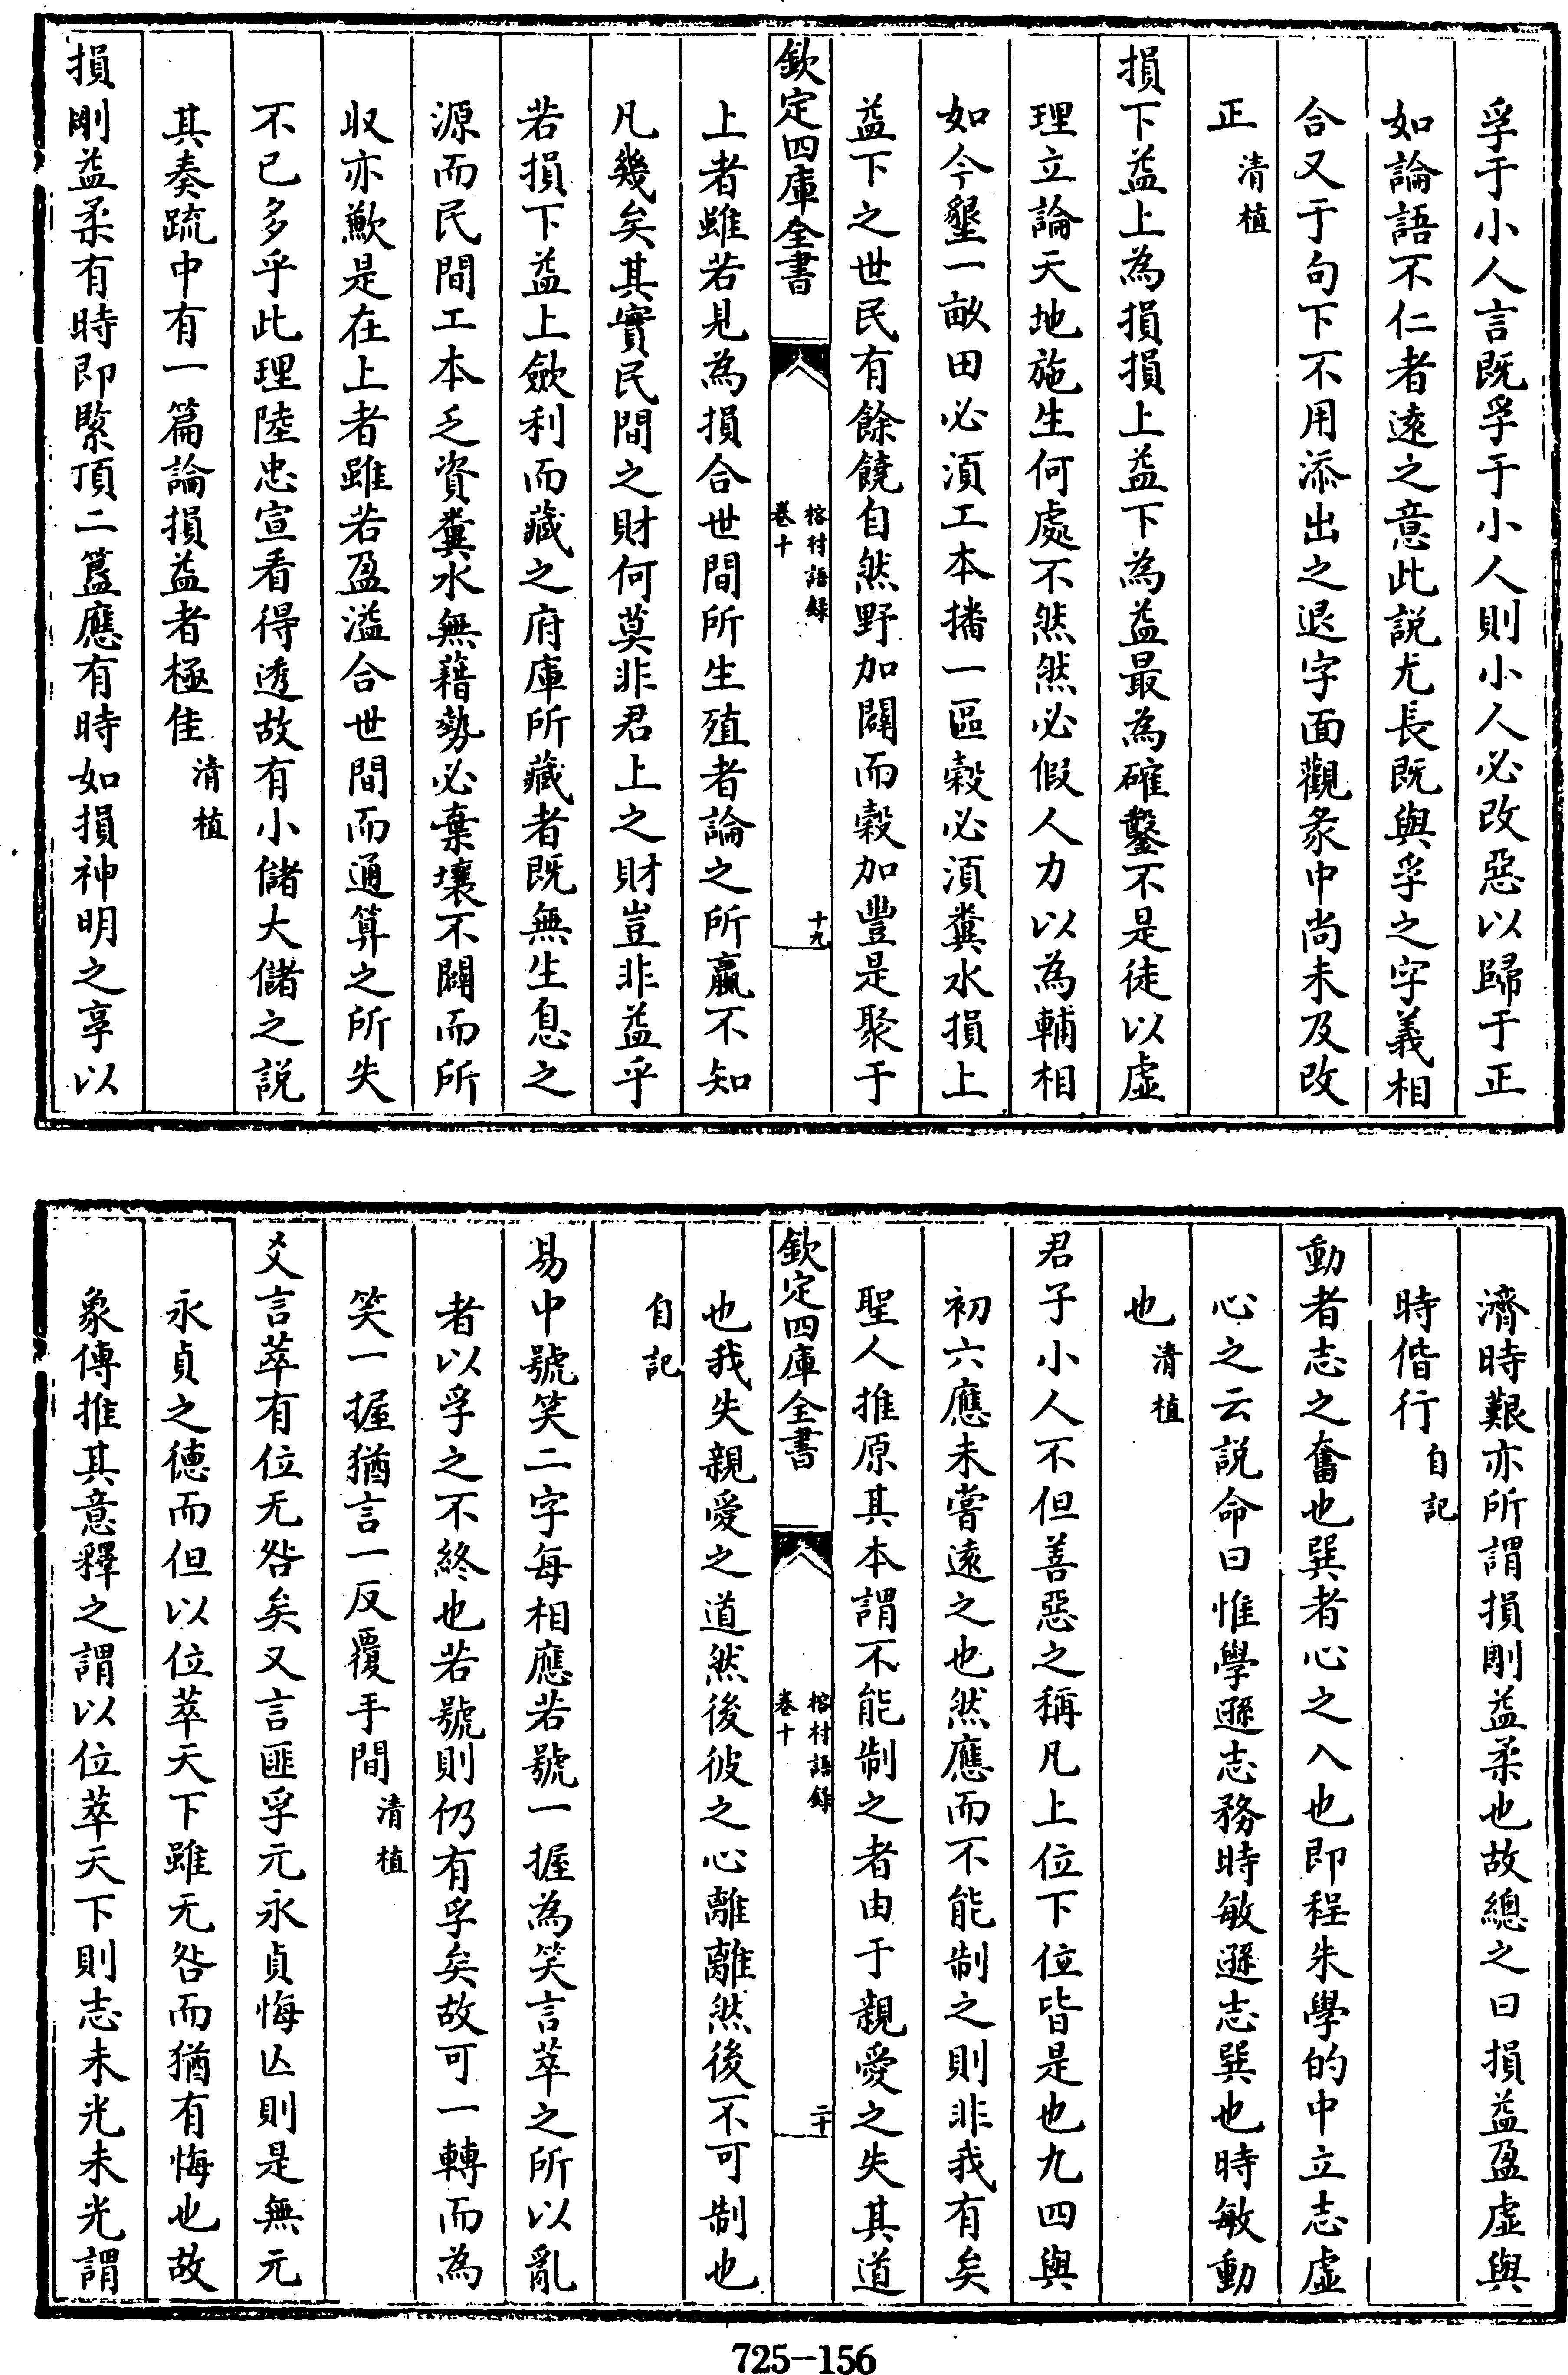 孚于小人言既孚于小人則小人必改惡以歸于正
如論語不仁者遠之意此説尤長既與孚之字義相
合又于句下不用添出之退字面觀彖中尚未及改
正清植
損下益上為損損上益下為益最為確鑿不是徒以虛
理立論天地施生何處不然然必假人力以為輔相
如今墾一畝田必須工本播一區穀必須糞水損上
益下之世民有餘饒自然野加闢而穀加豐是聚于
欽定四庫全書
榕村語録
卷十
十九
上者雖若見為損合世間所生殖者論之所贏不知
凡幾矣其實民間之財何莫非君上之財豈非益乎
若損下益上斂利而藏之府庫所藏者既無生息之
源而民間工本乏資糞水無藉勢必棄壤不闢而所
収亦歉是在上者雖若盈溢合世間而通算之所失
不已多乎此理陸忠宣看得透故有小儲大儲之説
其奏疏中有一篇論損益者極佳清植
損剛益柔有時即緊頂二簋應有時如損神明之享以
濟時艱亦所謂損剛益柔也故總之曰損益盈虛與
時偕行自記
動者志之奮也巽者心之入也即程朱學的中立志虛
心之云説命曰惟學遜志務時敏遜志巽也時敏動
也清植
君子小人不但善惡之稱凡上位下位皆是也九四與
初六應未嘗遠之也然應而不能制之則非我有矣
聖人推原其本謂不能制之者由于親愛之失其道
欽定四庫全書
榕村語録
卷十
二十
也我失親愛之道然後彼之心離離然後不可制也
自記
易中號笑二字每相應若號一握為笑言萃之所以亂
者以孚之不終也若號則仍有孚矣故可一轉而為
笑一握猶言一反覆手間清植
爻言萃有位无咎矣又言匪孚元永貞悔亾則是無元
永貞之德而但以位萃天下雖无咎而猶有悔也故
象傳推其意釋之謂以位萃天下則志未光未光謂
725-156